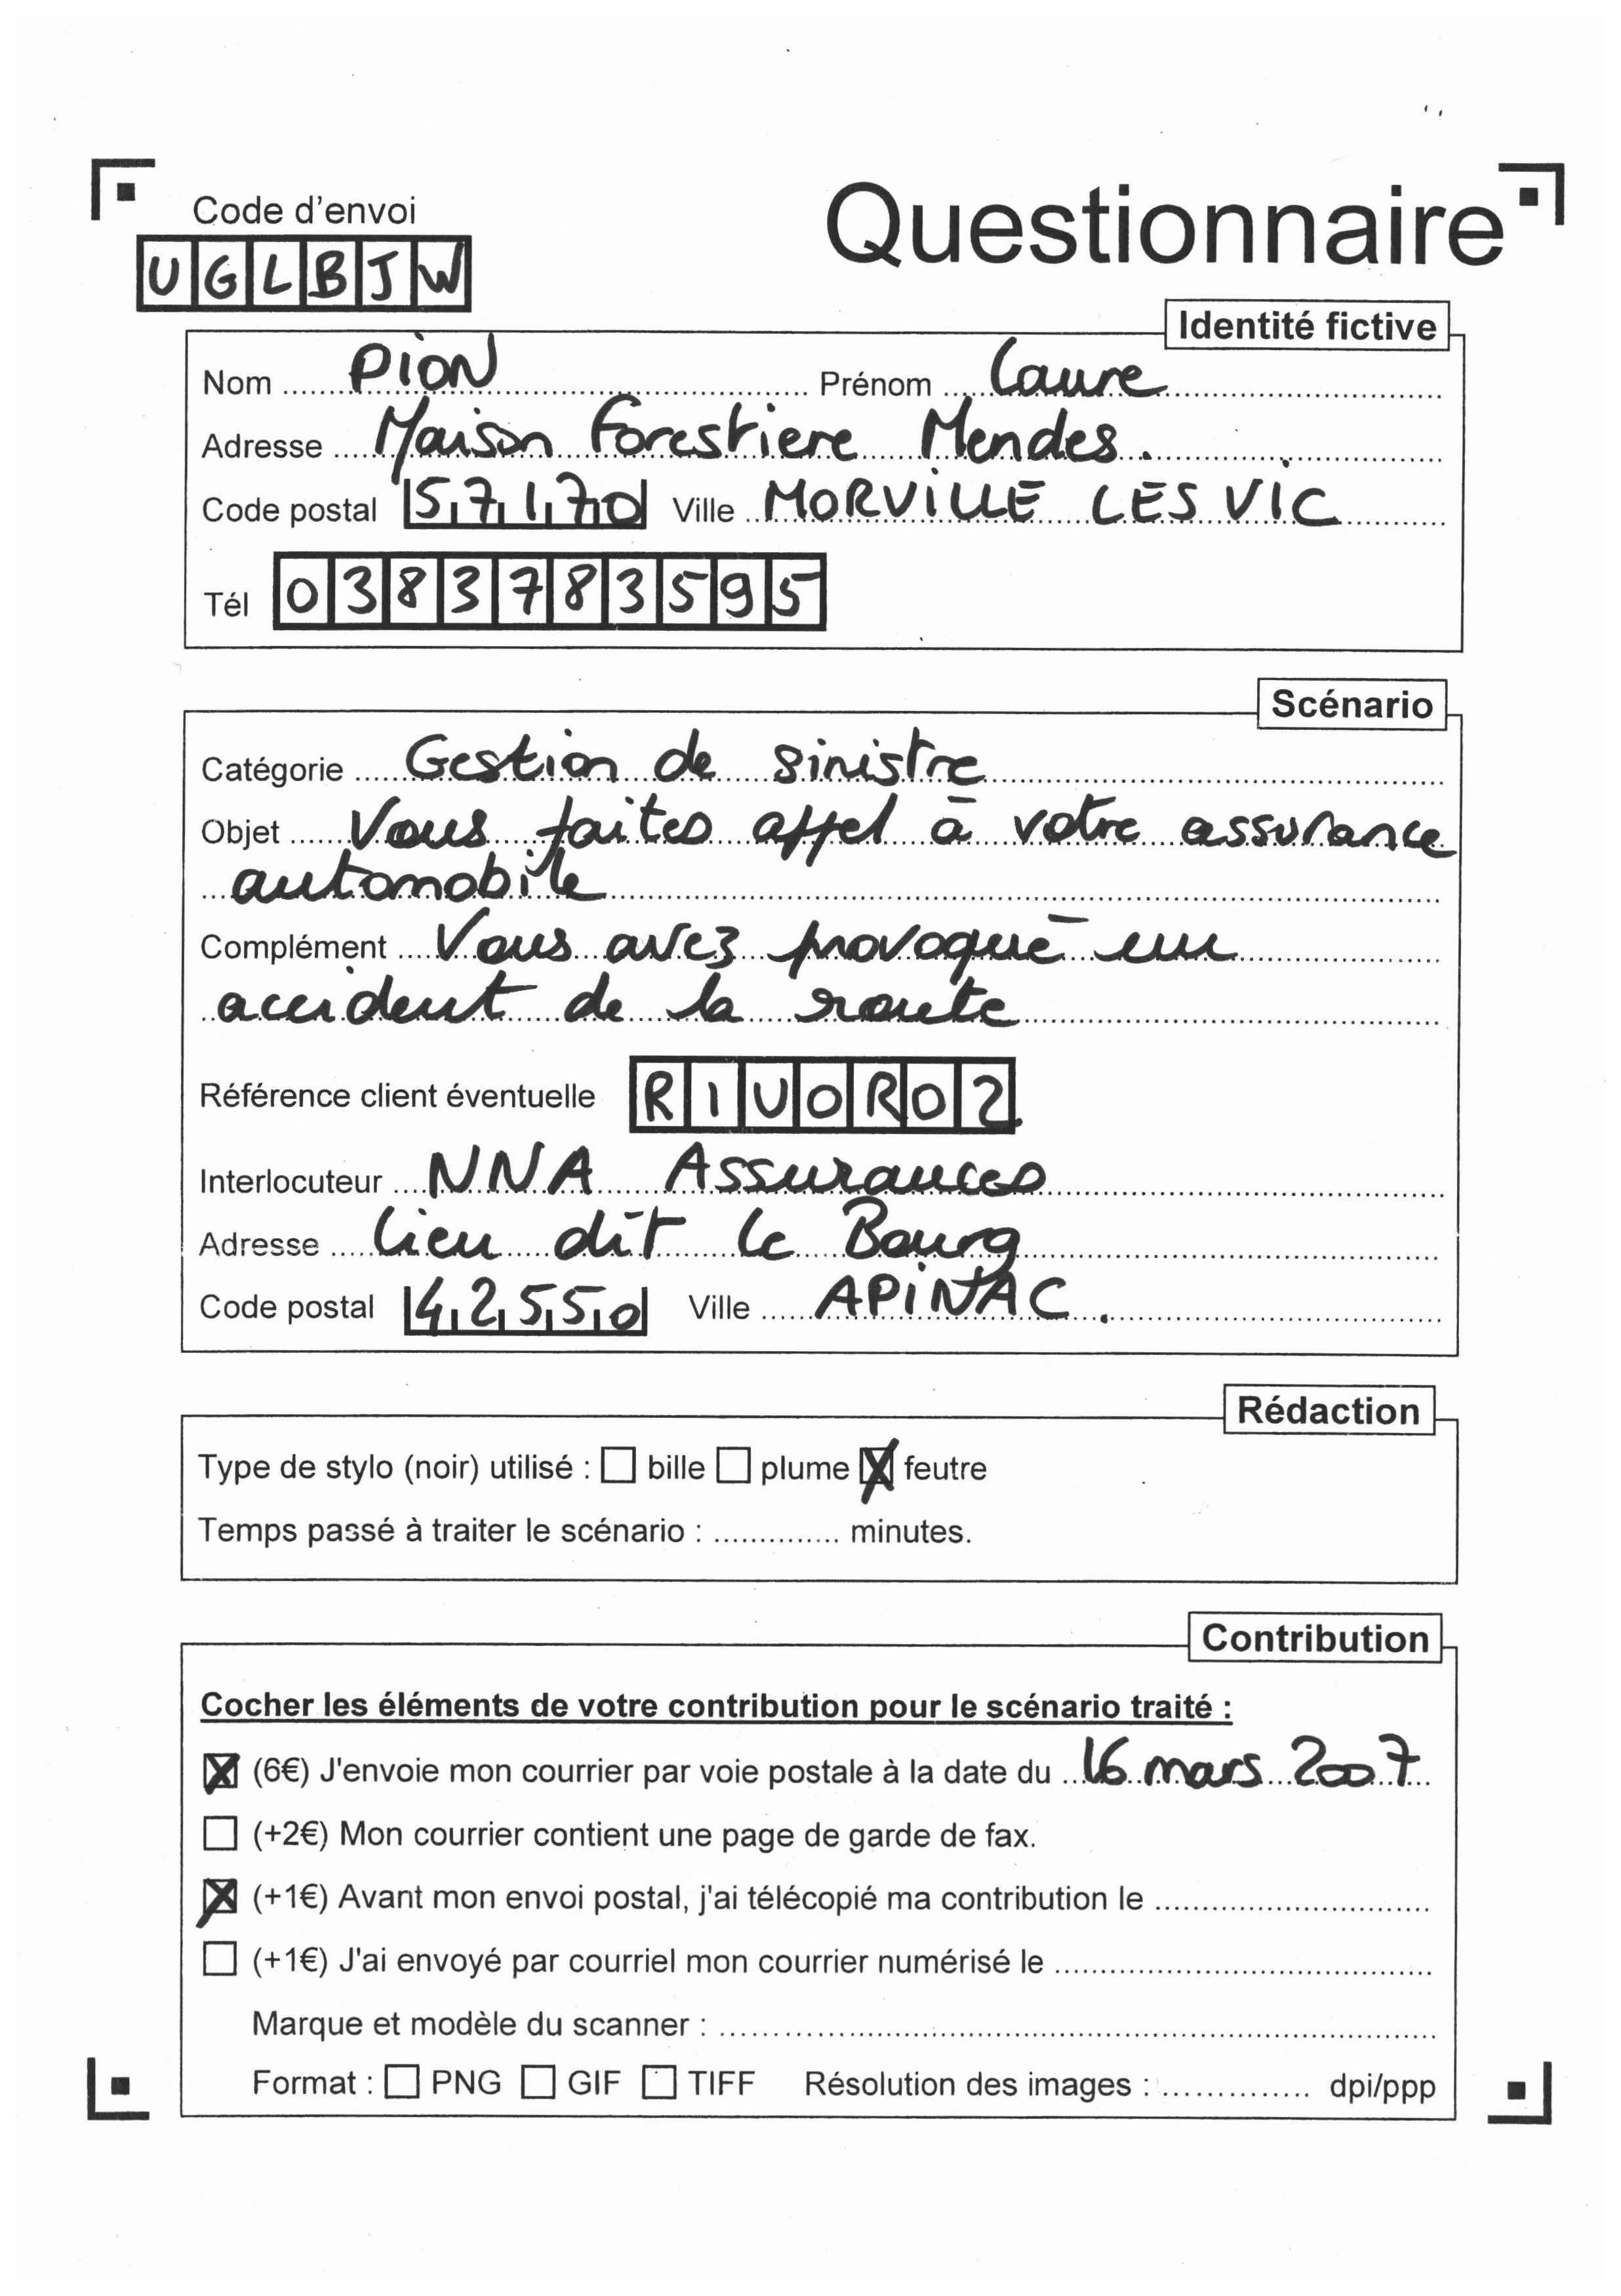 Code d'envoi
Questionnaire
UGLBJW
Identité fictive
Nom PION Prénom Laure
Adresse Maison Forestiere Mendes.
Code postal 57170 Ville MORVILLE LES VIC
Tél 0383783595
Scénario
Catégorie Gestion de sinistre
Objet Vous faites appel à votre assurance
automobile
Complément Vous avez provoqué un
accident de la route
Référence client éventuelle RIVORO2
Interlocuteur NNA Assurances
Adresse lieu dit le Bourg
Code postal 42550 Ville APINAC.
Rédaction
Type de stylo (noir) utilisé : bille plume feutre
Temps passé à traiter le scénario : .............. minutes.
Contribution
Cocher les éléments de votre contribution pour le scénario traité :
(6€) J'envoie mon courrier par voie postale à la date du 16 mars 2007
(+2€) Mon courrier contient une page de garde de fax.
(+1€) Avant mon envoi postal, j'ai télécopié ma contribution le
(+1€) J'ai envoyé par courriel mon courrier numérisé le
Marque et modèle du scanner :
Format : PNG GIF TIFF Résolution des images : .............. dpi/ppp